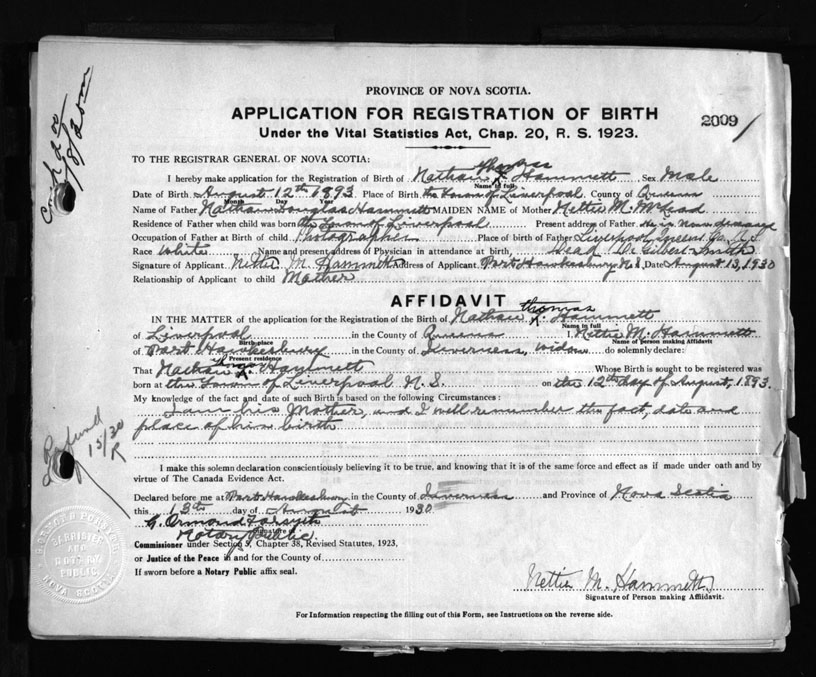 PROVINCE OF NOVA SCOTIA.
APPLICATION FOR REGISTRATION OF BIRTH
2009
Under the Vital Statistics Act, Chap. 20, R. S. 1923.
TO THE REGISTRAR GENERAL OF NOVA SCOTIA:
Thomas
I hereby make application for the Registration of Birth of Nathan Hammett Sex Male
Name in full
Date of Birth August 12th 1893 Place of Birth the Town of Liverpool County of Queens
Month Day Year
Name of Father Nathan Douglas Hammett MAIDEN NAME of Mother Nettie M. McLead
Residence of Father when child was born the Town of Liverpool Present address of Father He is now deceased
Occupation of Father at Birth of child Photographer Place of birth of Father Liverpool, Queens Co. N.S.
Race White Name and present address of Physician in attendance at birth, Dead Dr Gilbert Smith
Signature of Applicant Nettie M. Hammett Address of Applicant Port Hawkesbury N.S. Date August 13, 1930
Relationship of Applicant to child Mother
AFFIDAVIT
Thomas
IN THE MATTER of the application for the Registration of the Birth of Nathan Hammett
Name in full
of Liverpool in the County of Queens I Nettie M. Hammett
Birth-place Name of person making Affidavit
of Port Hawkesbury in the County of Inverness, widow do solemnly declare:
Present residence
Thomas
That Nathan Hammett Whose Birth is sought to be registered was
born at the Town of Liverpool N.S. on the 12th day of August, 1893.
My knowledge of the fact and date of such Birth is based on the following Circumstances:
I am his Mother, and I well remember the fact, date and
place of his birth
I make this solemn declaration conscientiously believing it to be true, and knowing that it is of the same force and effect as if made under oath and by
virtue of The Canada Evidence Act.
Declared before me at Port Hawkesbury in the County of Inverness and Province of Nova Scotia
this 13th day of August 1930
Ormond Forsyth
Notary Public
Commissioner under Section 9, Chapter 38, Revised Statutes, 1923,
or Justice of the Peace in and for the County of
If sworn before a Notary Public affix seal.
Nettie M. Hammett
Signature of Person making Affidavit.
For Information respecting the filling out of this Form, see Instructions on the reverse side.
Refund
15/30
R
BARRISTER
AND
NOTARY
PUBLIC
NOVA SCOTIA